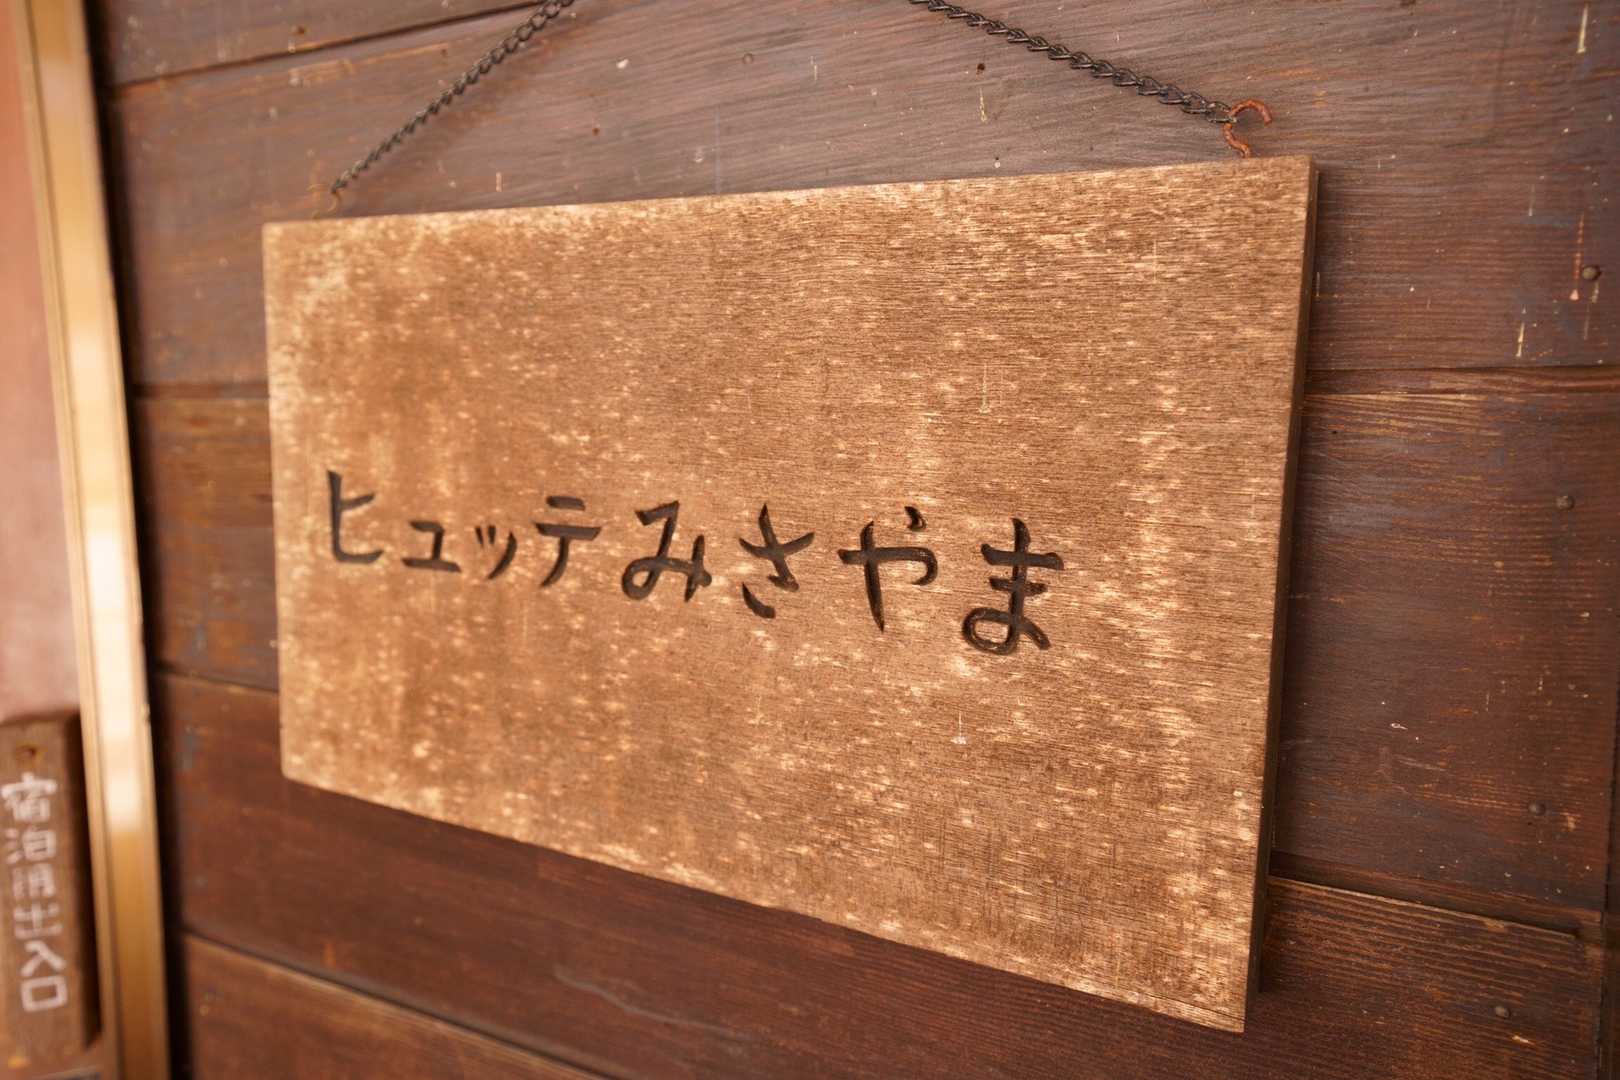 ヒュッテみさやま
宿泊用出入口